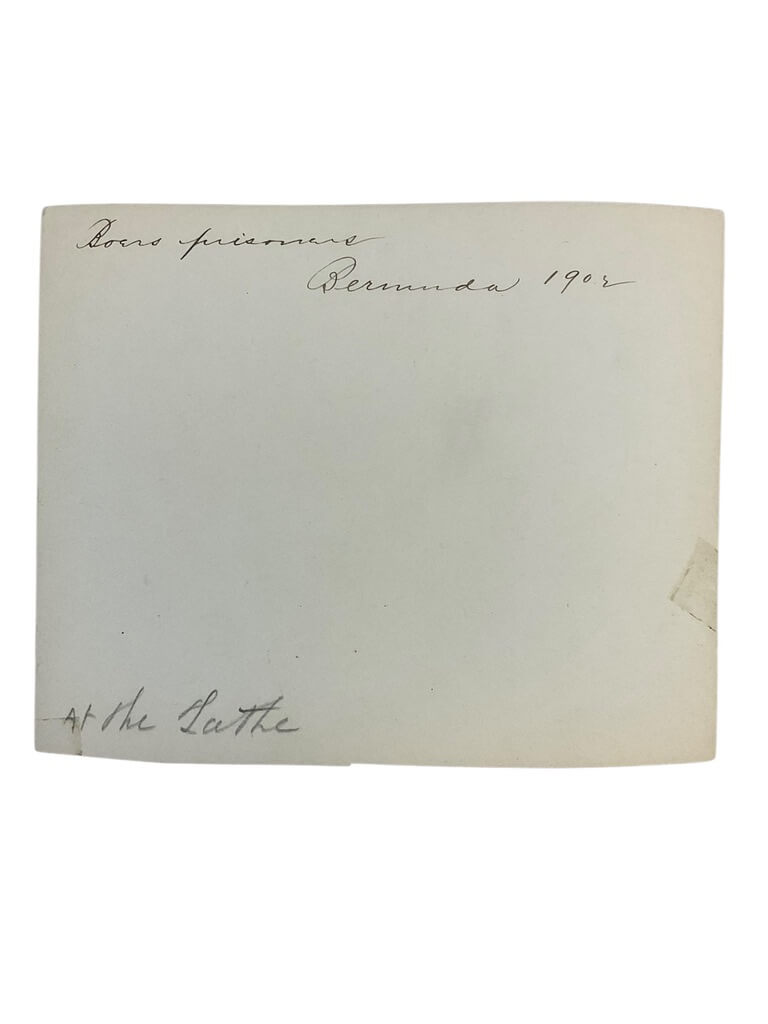 Boers prisoners
Bermuda 1902
At the Lathe